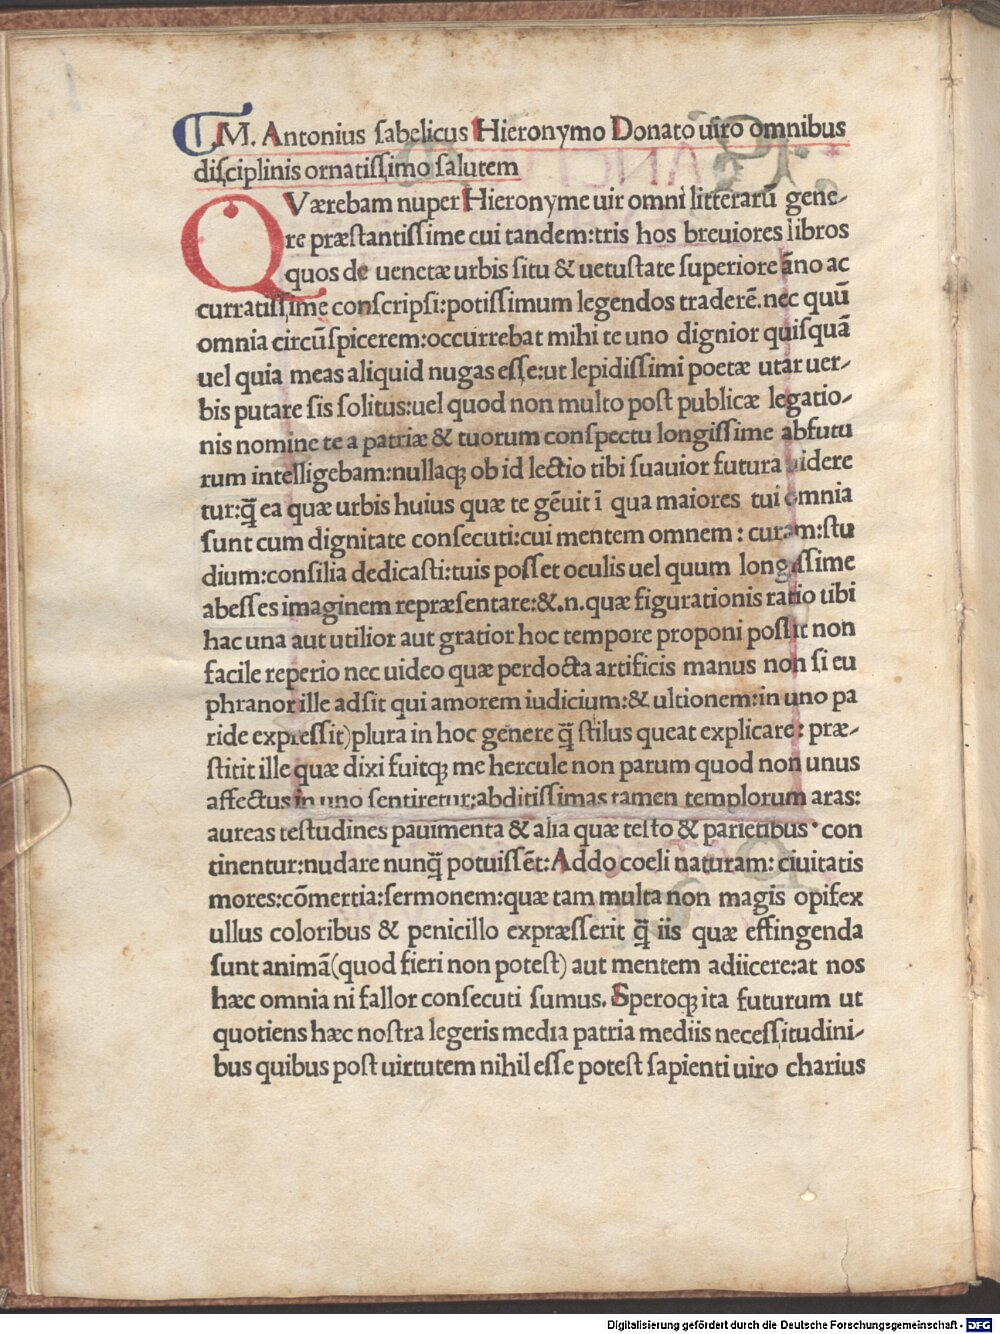 M. Antonius sabelicus Hieronymo Donato uiro omnibus
disciplinis ornatissimo salutem
QVærebam nuper Hieronyme uir omni litterarū gene-
re præstantissime cui tandem:tris hos breuiores libros
quos de uenetæ urbis situ & uetustate superiore āno ac
curratissime conscripsi:potissimum legendos traderē.nec quū
omnia circūspicerem:occurrebat mihi te uno dignior quisquā
uel quia meas aliquid nugas esse:ut lepidissimi poetæ utar uer-
bis putare sis solitus:uel quod non multo post publicæ legatio-
nis nomine te a patriæ & tuorum conspectu longissime abfutu
rum intelligebam:nullaqꝫ ob id lectio tibi suauior futura uidere
tur:q̄ ea quæ urbis huius quæ te gēuit ī qua maiores tui omnia
sunt cum dignitate consecuti:cui mentem omnem: curam:stu
dium:consilia dedicasti:tuis posset oculis uel quum longissime
abesses imaginem repræsentare:&.n.quæ figurationis ratio tibi
hac una aut utilior aut gratior hoc tempore proponi possit non
facile reperio nec uideo quæ perdocta artificis manus non si eu
phranor ille adsit qui amorem iudicium:& ultionem:in uno pa
ride expressit)plura in hoc genere q̄ stilus queat explicare: præ-
stitit ille quæ dixi fuitqꝫ me hercule non parum quod non unus
affectus in uno sentiretur:abditissimas tamen templorum aras:
aureas testudines pauimenta & alia quæ testo & parietibus con
tinentur:nudare nunq̄ potuissēt:Addo coeli naturam: ciuitatis
mores:cōmertia:sermonem:quæ tam multa non magis opifex
ullus coloribus & penicillo expræsserit q̄ iis quæ effingenda
sunt animā(quod fieri non potest) aut mentem adiicere:at nos
hæc omnia ni fallor consecuti sumus. Speroqꝫ ita futurum ut
quotiens hæc nostra legeris media patria mediis necessitudini-
bus quibus post uirtutem nihil esse potest sapienti uiro charius
Digitalisierung gefördert durch die Deutsche Forschungsgemeinschaft - DFG